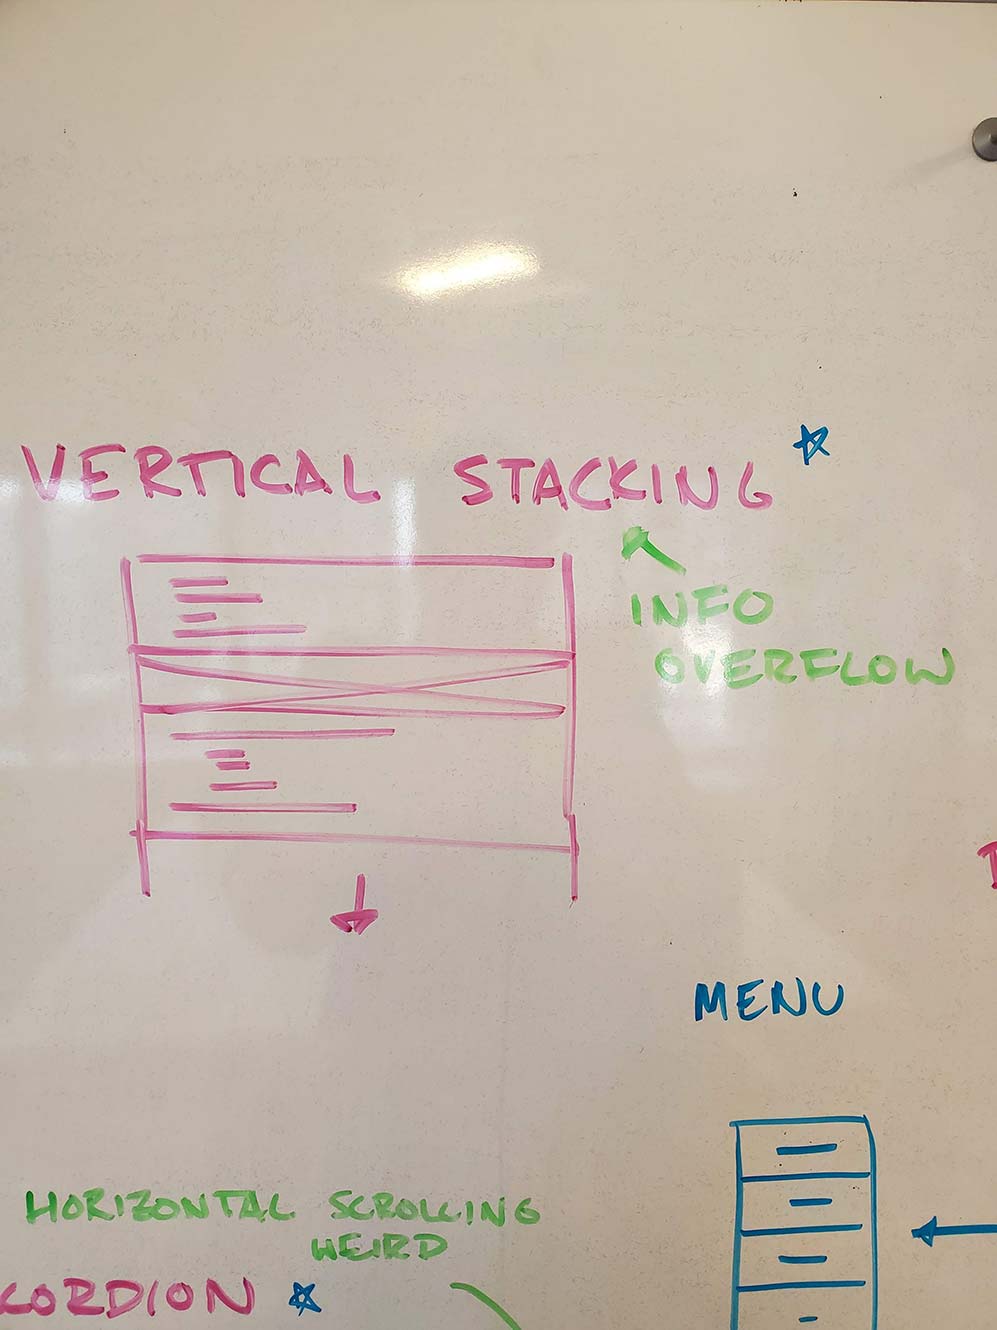 VERTICAL STACKING
INFO
OVERFLOW
MENU
HORIZONTAL SCROLLING
WEIRD
CORDION